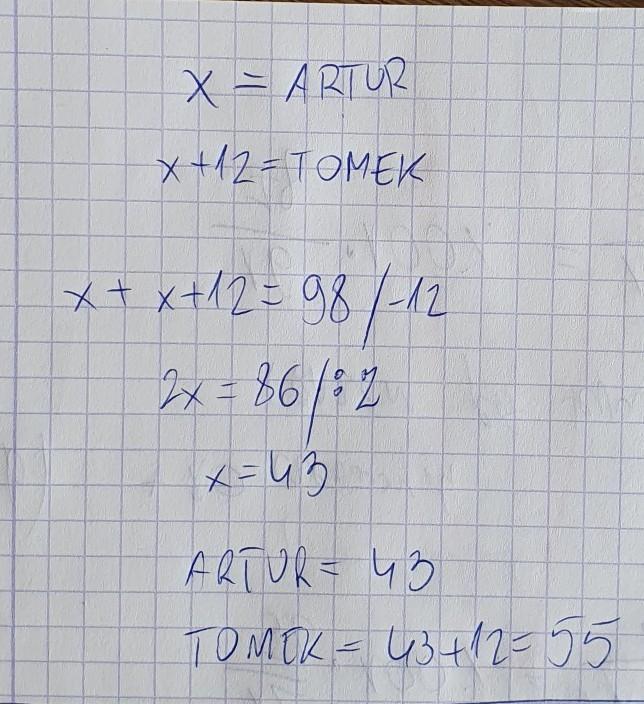 x = ARTUR
x+12 = TOMEK
x + x+12 = 98 /-12
2x = 86 /:2
x = 43
ARTUR = 43
TOMEK = 43+12 = 55